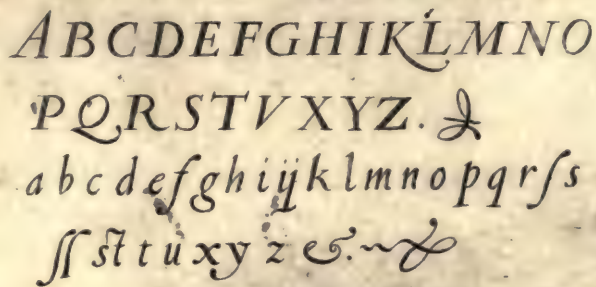 A B C D E F G H I K L M N O
P Q R S T V X Y Z .
a b c d e f g h i ij k l m n o p q r ſ s
ſſ st t u x y z &.